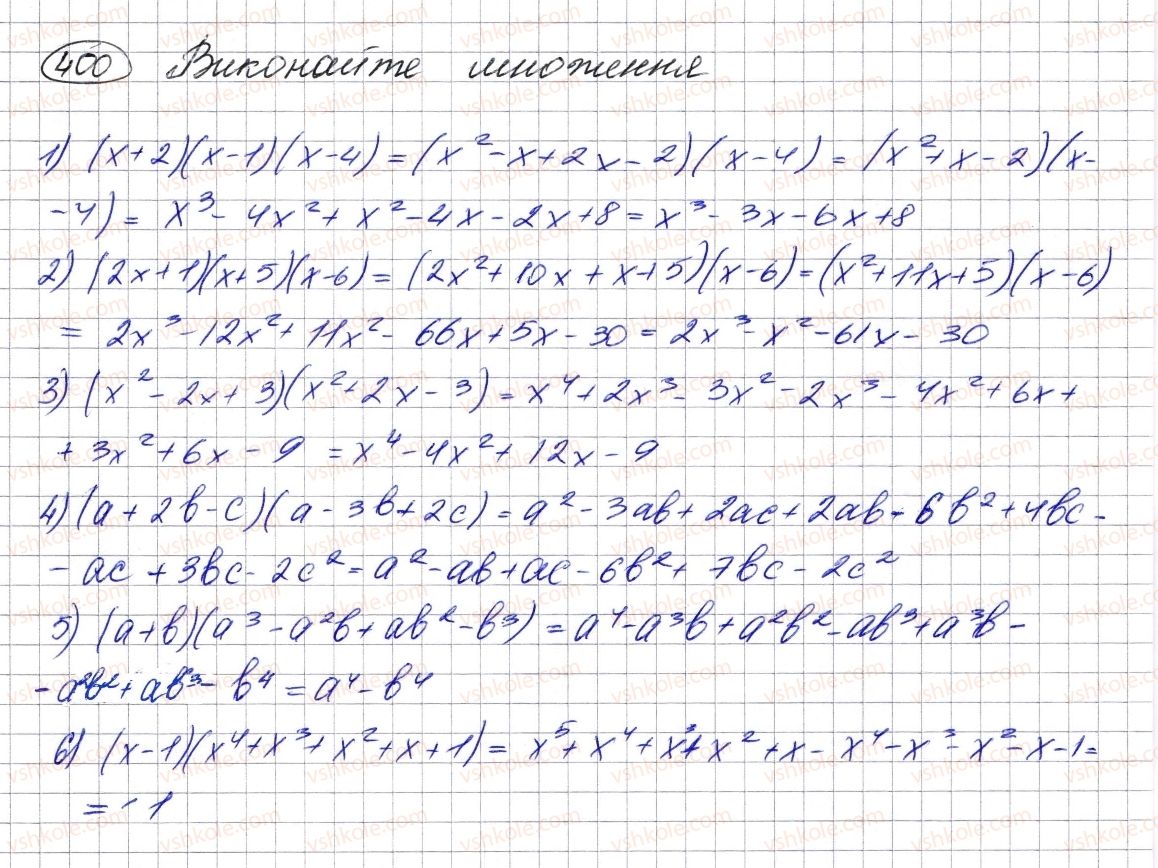 400 Виконайте множення
1) (x+2)(x-1)(x-4) = (x²-x+2x-2)(x-4) = (x²+x-2)(x-
-4) = x³-4x²+x²-4x-2x+8 = x³-3x-6x+8
2) (2x+1)(x+5)(x-6) = (2x²+10x+x+5)(x-6) = (x²+11x+5)(x-6)
= 2x³-12x²+11x²-66x+5x-30 = 2x³-x²-61x-30
3) (x²-2x+3)(x²+2x-3) = x⁴+2x³-3x²-2x³-4x²+6x+
+3x²+6x-9 = x⁴-4x²+12x-9
4) (a+2b-c)(a-3b+2c) = a²-3ab+2ac+2ab-6b²+4bc-
-ac+3bc-2c² = a²-ab+ac-6b²+7bc-2c²
5) (a+b)(a³-a²b+ab²-b³) = a⁴-a³b+a²b²-ab³+a³b-
-a²b²+ab³-b⁴ = a⁴-b⁴
6) (x-1)(x⁴+x³+x²+x+1) = x⁵+x⁴+x³+x²+x-x⁴-x³-x²-x-1=
= -1